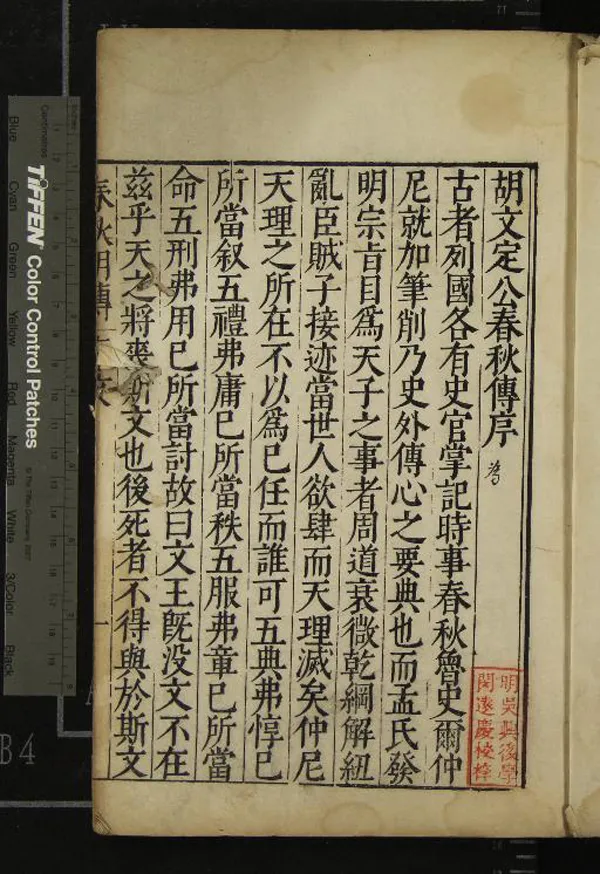 胡文定公春秋傳序
古者列國各有史官掌記時事春秋魯史爾仲
尼就加筆削乃史外傳心之要典也而孟氏發
明宗旨目為天子之事者周道衰微乾綱解紐
亂臣賊子接迹當世人欲肆而天理滅矣仲尼
天理之所在不以為己任而誰可五典弗惇已
所當叙五禮弗庸已所當秩五服弗章已所當
命五刑弗用已所當討故曰文王旣没文不在
茲乎天之將喪斯文也後死者不得與於斯文
春秋胡傳序
一
明吳興後學
閔遂慶校梓
TIFFEN Color Control Patches
© The Tiffen Company, 2007
Centimetres
Inches
Blue
Cyan
Green
Yellow
Red
Magenta
White
3/Color
Black
B4